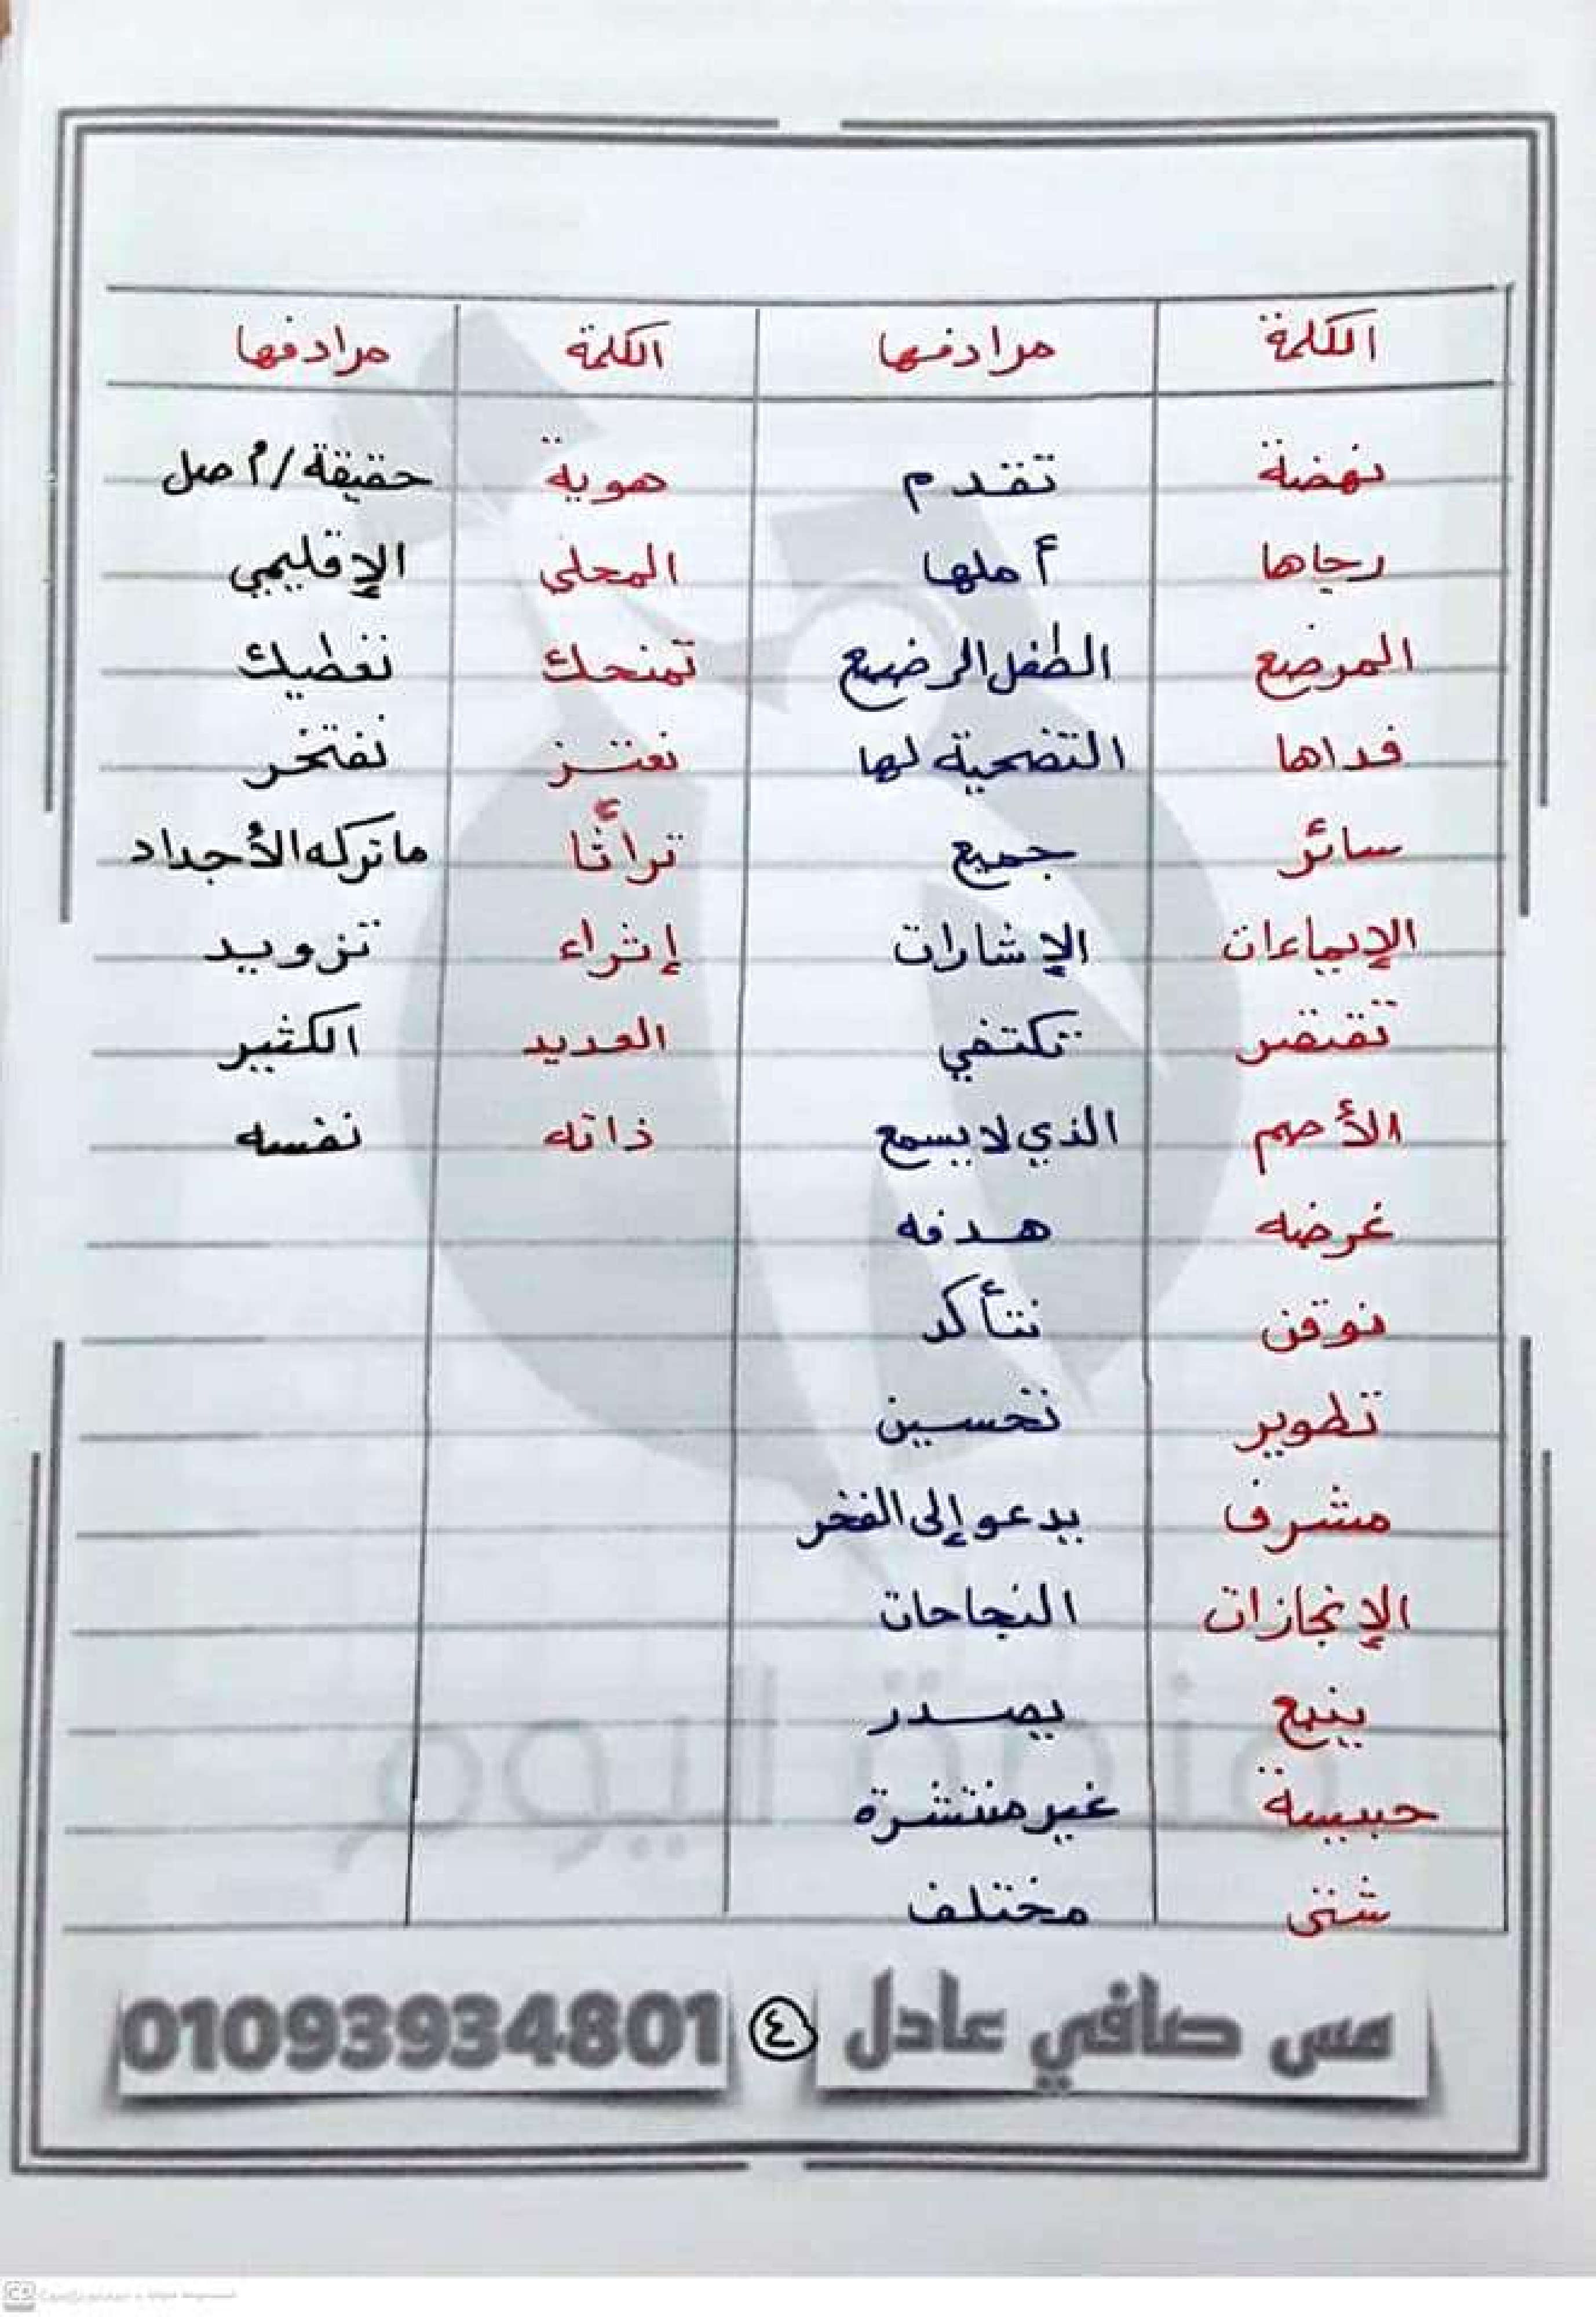 الكلمة مرادفها الكلمة مرادفها
نهضة تقدم هوية حقيقة / أصل
رجاها أملها المحلي الإقليمي
المرضع الطفل الرضيع تمنحك تعطيك
فداها التضحية لها نعتز نفتخر
سائر جميع تراثًا ما تركه الأجداد
الإيماءات الإشارات إثراء تزويد
تقتصر تكتفي العديد الكثير
الأصم الذي لا يسمع ذاته نفسه
غرضه هدفه
نوقن نتأكد
تطوير تحسين
مشرف يدعو إلى الفخر
الإنجازات النجاحات
ينبع يصدر
حبيسة غير منتشرة
شتى مختلف
منصة اليوم
مس صافي عادل ٤ 01093934801
CS